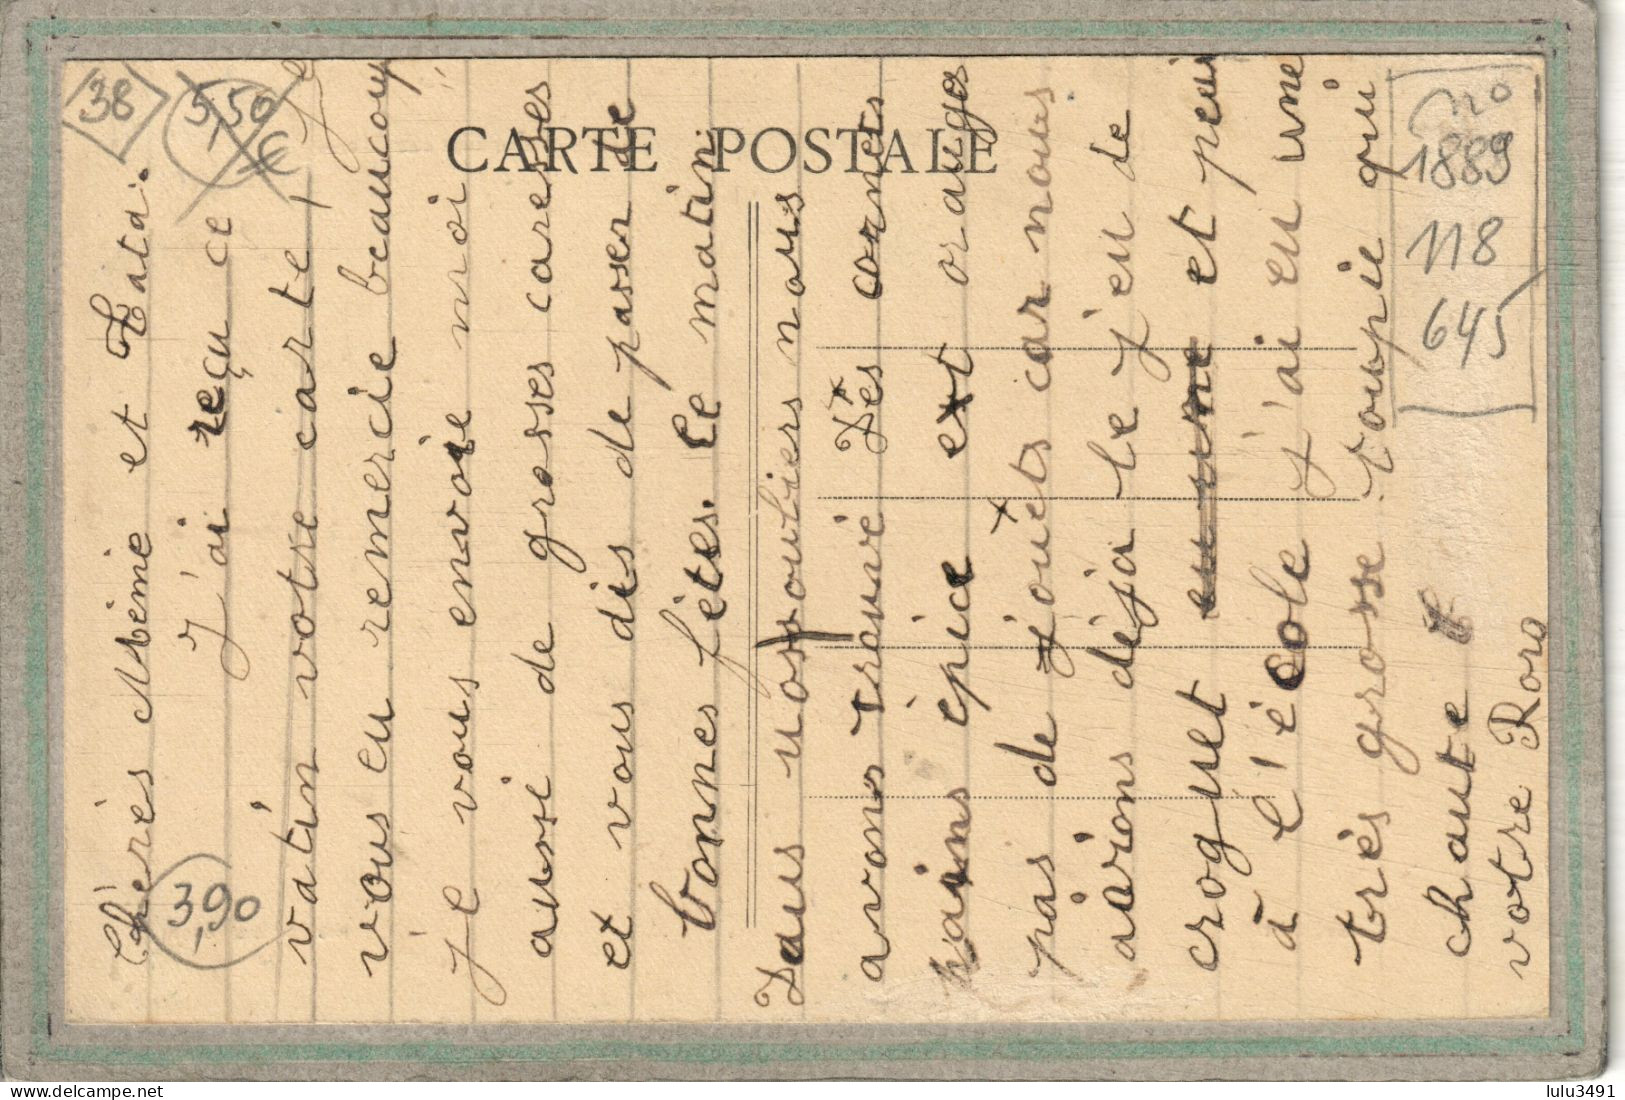 Chères Mémé et Tata.
J'ai reçu ce
matin votre carte, je
vous en remercie beaucoup
je vous envoie moi
aussi de grosses caresses
et vous dis de passer de
bonnes fêtes. Ce matin
Dans nos souliers nous
avons trouvé Des cornets
pains épice et oranges
pas de jouets car nous
avions déja le j'eu de
croquet et puis
à l'école j'ai eu une
très grosse toupie qui
chante
votre Roro
CARTE POSTALE
38
5,50 €
3,90
no
1889
118
645
lulu3491